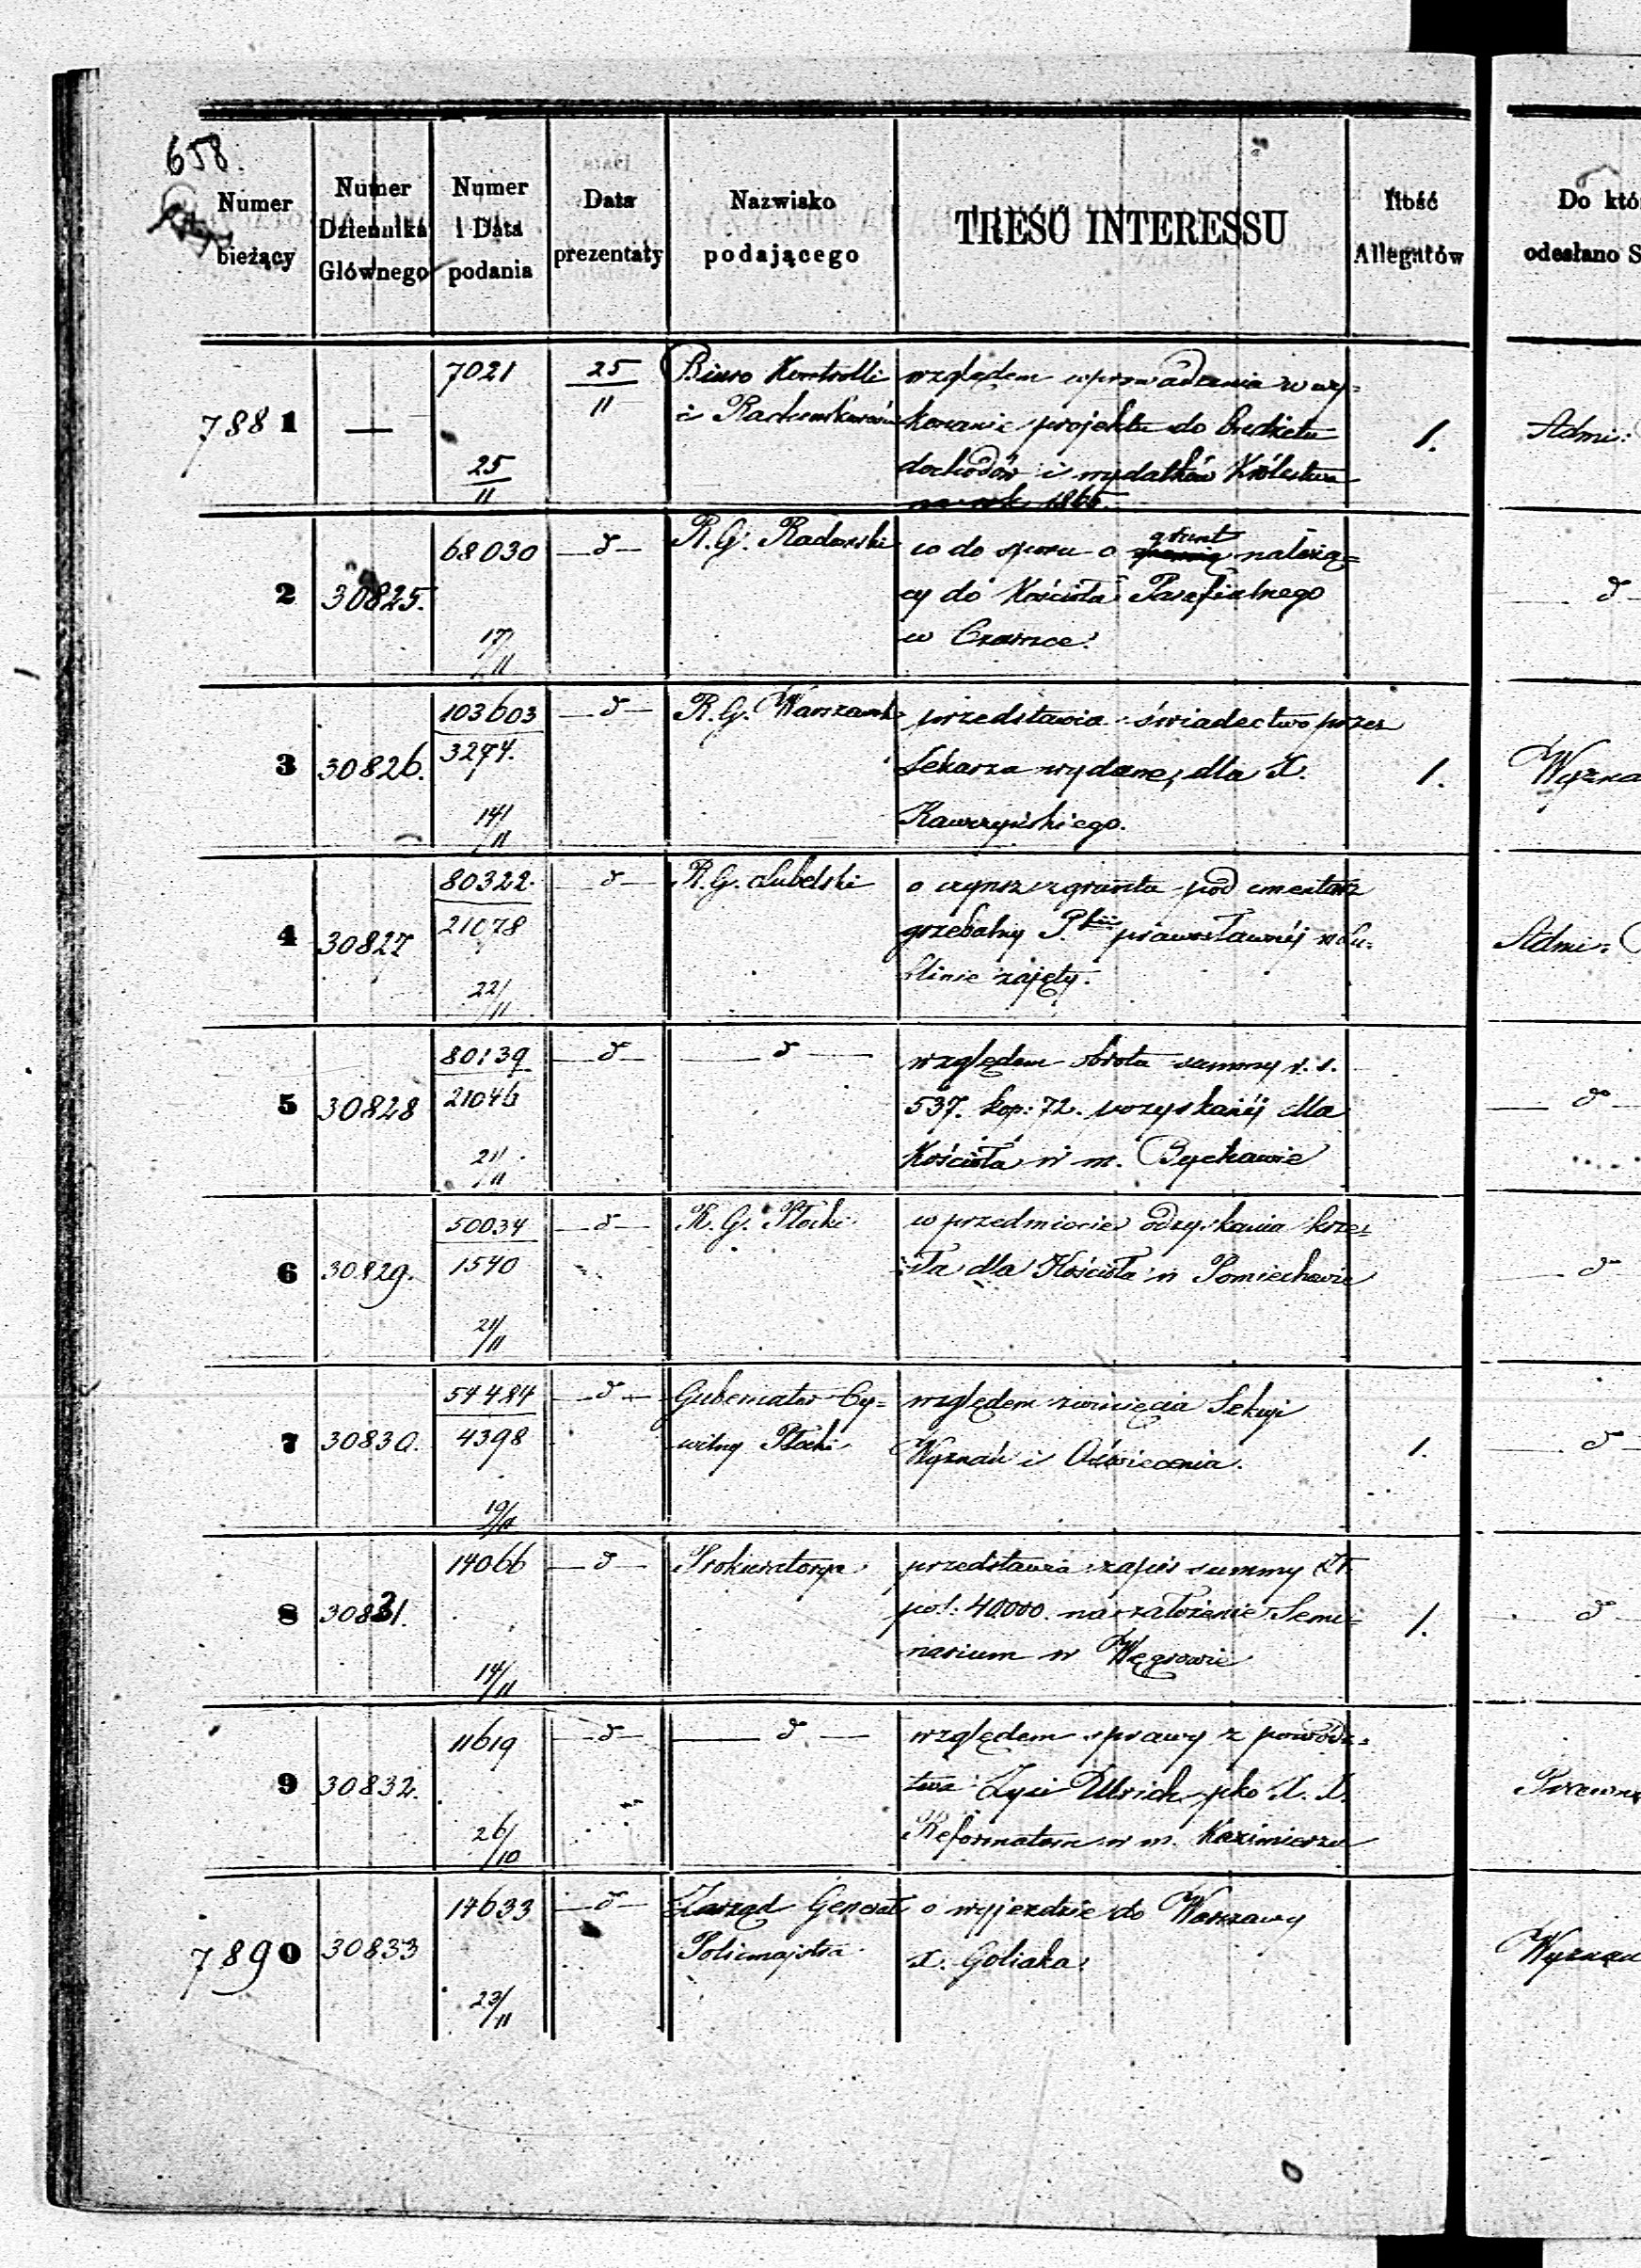 658.
Numer bieżący
Numer Dziennika Głównego
Numer i Data podania
Data prezentaty
Nazwisko podającego
TREŚĆ INTERESSU
Ilość Allegatów
Do któ
odesłano S
7881 — 7021 25/11 25/11 Biuro Kontrolli względem wprowadzenia w wy=
i Rachunkowości konanie projektu do budżetu 1. Admi:
dochodów i wydatków Królestwa
na rok 1865.
2 30825. 68030 17/11 —d— R. G. Radomski co do sporu o grunt należą= —d—
cy do Kościoła Parafialnego
w Czarnce.
3 30826. 103603/3274. 14/11 —d— R. G. Warszawski przedstawia świadectwo przez
Lekarza wydane, dla X. 1. Wyzna
Kawczyńskiego.
4 30827 80322./21078 22/11 —d— R. G. Lubelski o czynsz z gruntu pod cmentarz
grzebalny P.fii prawosławnéj w Lu= Admi:
blinie zajęty.
5 30828 80139/21046 21/11 —d— —d— względem zwrotu summy r. s.
537. kop: 72. pozyskanéj dla —d—
Kościoła w m. Bychawie
6 30829. 50034/1540 21/11 —d— R. G. Płocki w przedmiocie odzyskania krze=
sła dla Kościoła w Pomiechowie —d—
7 30830. 54484/4398 19/11 —d— Gubernator Cy= względem zwinięcia Sekcyi
wilny Płocki Wyznań i Oświecenia. 1. —d—
8 30831. 14066 14/11 —d— Prokuratorya przedstawia zapis summy Zł.
pol: 40,000. na założenie Semi= 1. —d—
narium w Węgrowie
9 30832. 11619 26/10 —d— —d— względem sprawy z powódz=
twa Ulrich pko X. X.
Reformatom w m. Kazimierzu
7890 30833 17633 23/11 —d— Zarząd Generał o wyjezdzie do Warszawy
Policmajstra X. Goliaka. Wyznan